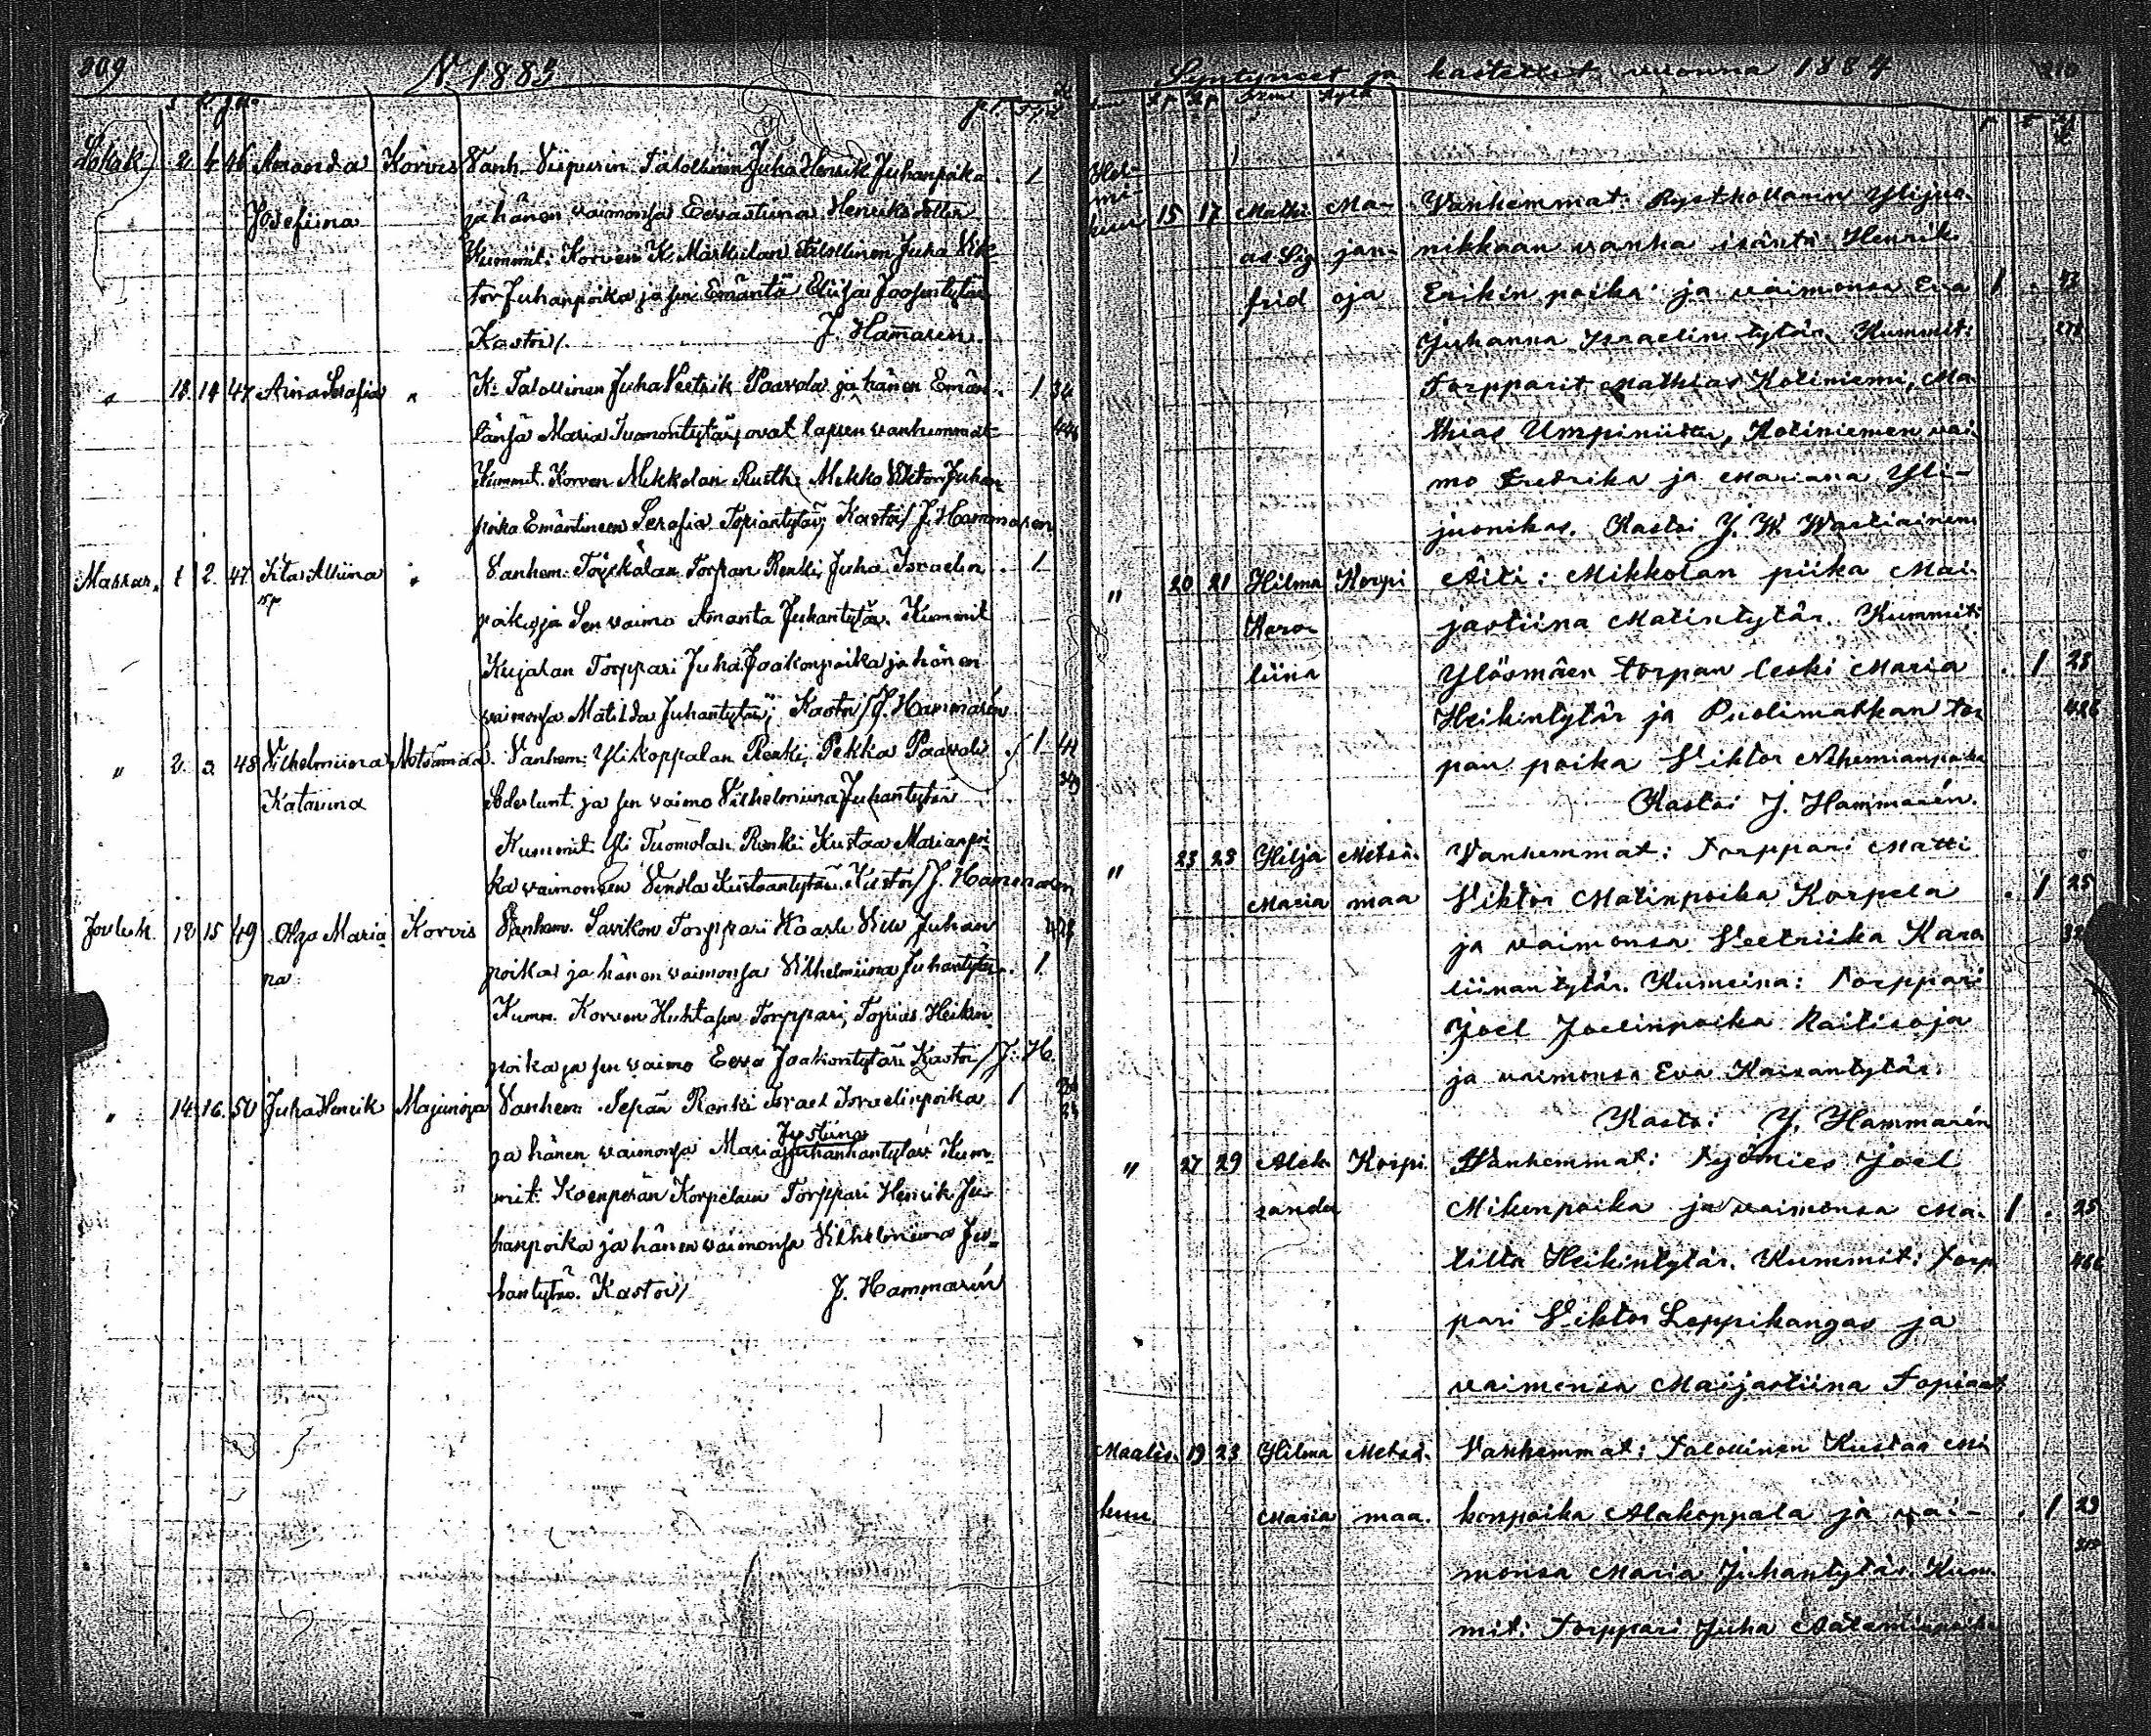 209
N 1883
s. k. j. n.
Lokak. 2. 4 46 Amanda Korvis Vanh. Viipurin Talollinen Juha Henrik Juhanpoika . 1
Josefiina ja hänen vaimonsa Eevastiina Henriksdotter
Kummit: Korven K. Markulan Talollinen Juha Vik-
tor Juhanpoika ja sen Emäntä Eliisa Joosentytär
Kastoi/. J. Hamaren.
" 18 19 47 Aina Serafia " K: Talollinen Juha Veetrik Paavola ja hänen Emän- . 1 34
tänsä Maria Tuomontytär, ovat lapsen vanhemmat 446
Kummit. Korven Mikkolan Rusth: Mikko Viktor Juhan
poika Emäntineen Serafia Topiantytär, Kastoi/ J. Hammaren
Marras. 1 2. 47 Iita Alliina " Vanhem: Töyskälän Torpan Renki, Juha Israelin . 1
poika, ja Sen vaimo Amanta Juhantytär. Kummit
Kujalan Torppari Juha Jaakonpoika ja hänen
vaimonsa Matilda Juhantytär; Kastoi/ J. Hammarén
" 2. 3. 48 Vilhelmiina Metsämaa. Vanhem: Ylikoppalan Renki, Pekka Paavali . 1 41
Katariina Söderlunt ja sen vaimo Vilhelmiina Juhantytär 349
Kummit Yli Tuomolan Renki Kustaa Marianpoi-
ka vaimonsen Vendla Kustaantytär. Kastoi/ J. Hammaren
Jouluk. 12 15 49 Olga Maria Korvis Vanhem. Savikon Torppari Kaarle Vile Juhan 428
na poika ja hänen vaimonsa Vilhelmiina Juhantytär . 1
Kumm. Korven Huhtasen Torppari, Topias Heikin
poika ja sen vaimo Eeva Jaakontytär Kastoi /J. H.
" 14. 16. 50 Juha Henrik Majanoja Vanhem: Sepän Renki Israel Isrælinpoika 1
Justiina
ja hänen vaimonsa Maria Juhanhantytär Kum-
mit: Koenperän Korpelan Torppari Henrik Ju-
hanpoika ja hänen vaimonsa Vilhelmiina Ju-
hantytär. Kastoi/ J. Hammarén
Syntyneet ja kastetut vuonna 1884
210
Hel-
mi-
kuu 15 17 Mathi Ma- Vanhemmat: Rysthollarin Ylijuo-
as Sig jan- nikkaan vanha isäntä Henrik
frid oja Erikin poika ja vaimonsa Eva 1 . 42
Juhanna Israelin tytär, Kummit: 278
Torpparit Mathias Kotiniemi, Ma-
thias Umpiniittu, Kotiniemen vai
mo Fredrika ja Mariana Yli-
juonikas. Kastoi J. W. Wartiainen
" 20 21 Hilma Korpi Äiti: Mikkolan piika Mai-
Karo- jastiina Matintytär. Kummit:
liina Ylösmäen torpan leski Maria . 1 28
Heikintytär ja Puolimatkan tor 426
pan poika Viktor Nehemianpoika
Kastoi J. Hammarén.
" 23 25 Hilja Metsä- Vanhemmat: Torppari Matti
Maria maa Viktor Matinpoika Korpela . 1 25
ja vaimonsa Veetriika Karo-
liinantytär. Kumeina: Torppari
Joel Joelinpoika Raitisoja
ja vaimonsa Eva Kaisantytär.
Kastoi J. Hammarén
" 27 29 Alek- Korpi Wanhemmat: Työmies Joel
sander Mikonpoika ja vaimonsa Ma- 1 . 25
tilta Heikintytär. Kummit: Torp 466
pari Viktor Leppikangas ja
vaimonsa Maijastiina Topiant
Maalis- 19 23 Hilma Metsä- Vanhemmat: Talollinen Kustaa Mi
kuu. Maria maa. konpoika Alakoppala ja vai- . 1 29
monsa Maria Juhantytär. Kum-
mit: Torppari Juha Aataminpoika